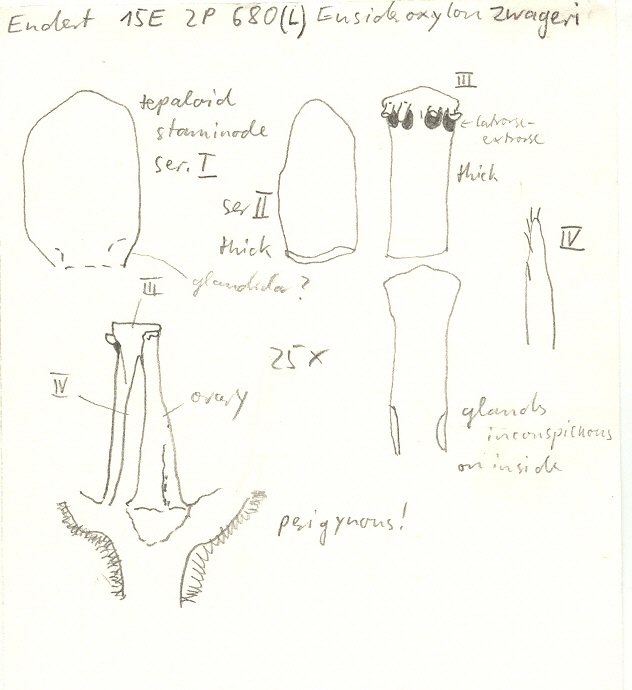 Endert 15E 2P 680(L) Eusideroxylon zwageri
tepaloid
staminode
ser. I
ser II
thick
III
latrorse-
extrorse
thick
IV
glandula?
III
25x
IV
ovary
glands
inconspicuous
on inside
perigynous!